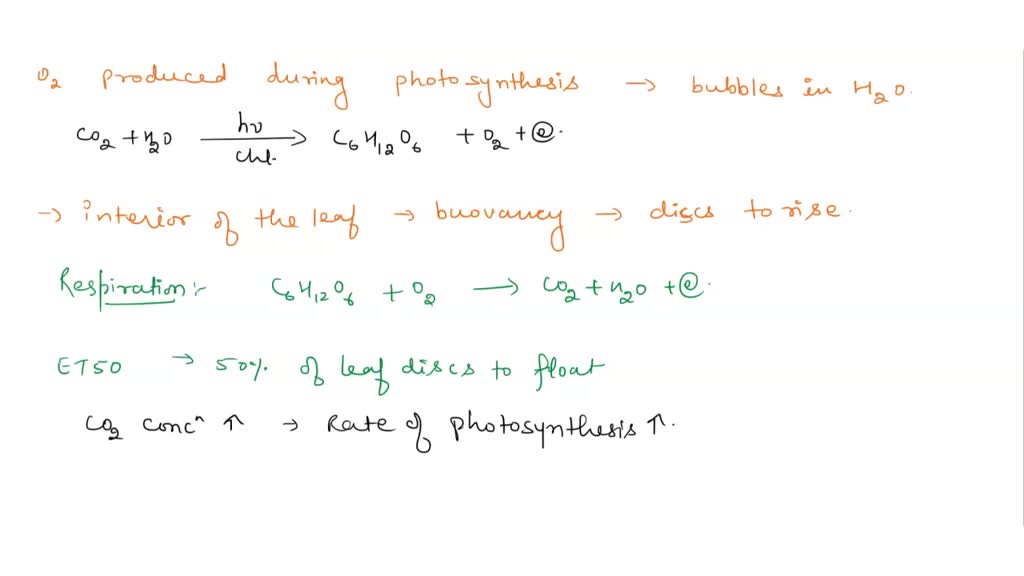 O₂ produced during photosynthesis → bubbles in H₂O.
CO₂ + H₂O hν/chl. → C₆H₁₂O₆ + O₂ + ⓔ.
→ interior of the leaf → buovancy → discs to rise.
Respiration:- C₆H₁₂O₆ + O₂ → CO₂ + H₂O + ⓔ.
ET50 → 50% of leaf discs to float
CO₂ concⁿ ↑ → Rate of photosynthesis ↑.